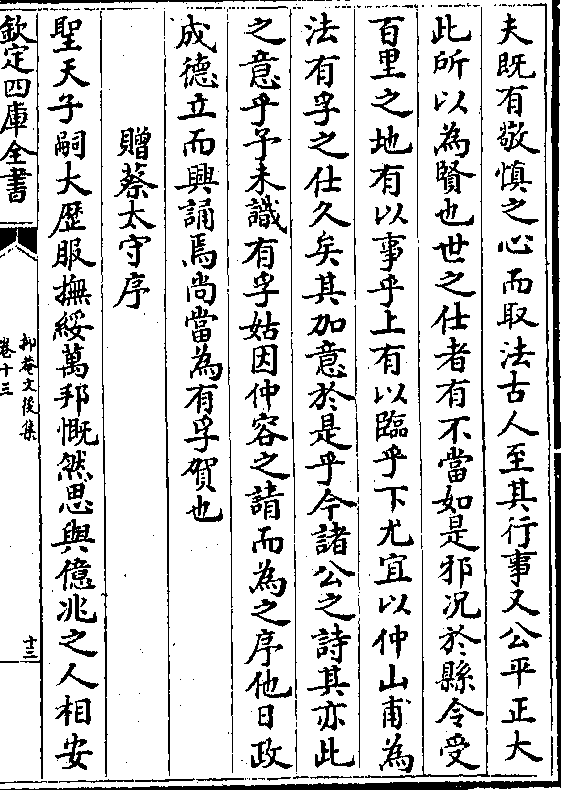 夫既有敬慎之心而取法古人至其行事又公平正大
此所以為賢也世之仕者有不當如是邪况於縣令受
百里之地有以事乎上有以臨乎下尤宜以仲山甫為
法有孚之仕久矣其加意於是乎今諸公之詩其亦此
之意乎予未識有孚姑因仲容之請而為之序他日政
成德立而興誦焉尚當為有孚賀也
贈蔡太守序
聖天子嗣大歴服撫綏萬邦慨然思與億兆之人相安
欽定四庫全書
抑菴文後集
卷十三
十三